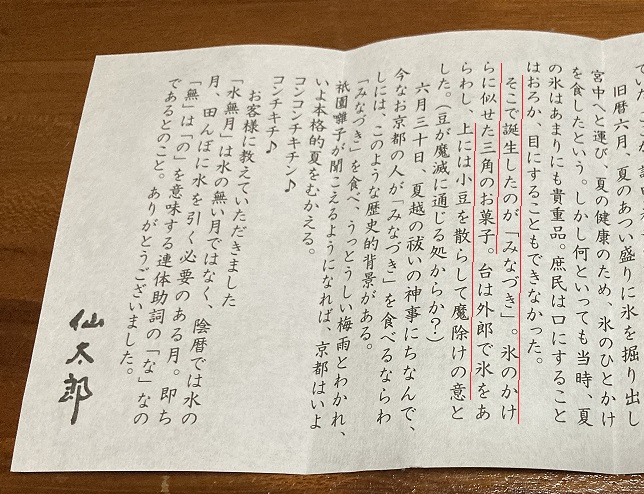 旧暦六月、夏のあつい盛りに氷を掘り出し
宮中へと運び、夏の健康のため、氷のひとかけ
を食したという。しかし何といっても当時、夏
の氷はあまりにも貴重品。庶民は口にすること
はおろか、目にすることもできなかった。
そこで誕生したのが「みなづき」。氷のかけ
らに似せた三角のお菓子。台は外郎で氷をあ
らわし、上には小豆を散らして魔除けの意と
した。(豆が魔滅に通じる処からか?)
六月三十日、夏越の祓いの神事にちなんで、
今なお京都の人が「みなづき」を食べるならわ
しには、このような歴史的背景がある。
「みなづき」を食べ、うっとうしい梅雨とわかれ、
祇園囃子が聞こえるようになれば、京都はいよ
いよ本格的夏をむかえる。
コンコンチキチン♪
コンチキチ♪
お客様に教えていただきました
「水無月」は水の無い月ではなく、陰暦では水の
月、田んぼに水を引く必要のある月。即ち
「無」は「の」を意味する連体助詞の「な」なの
であるとのこと。ありがとうございました。
仙太郎